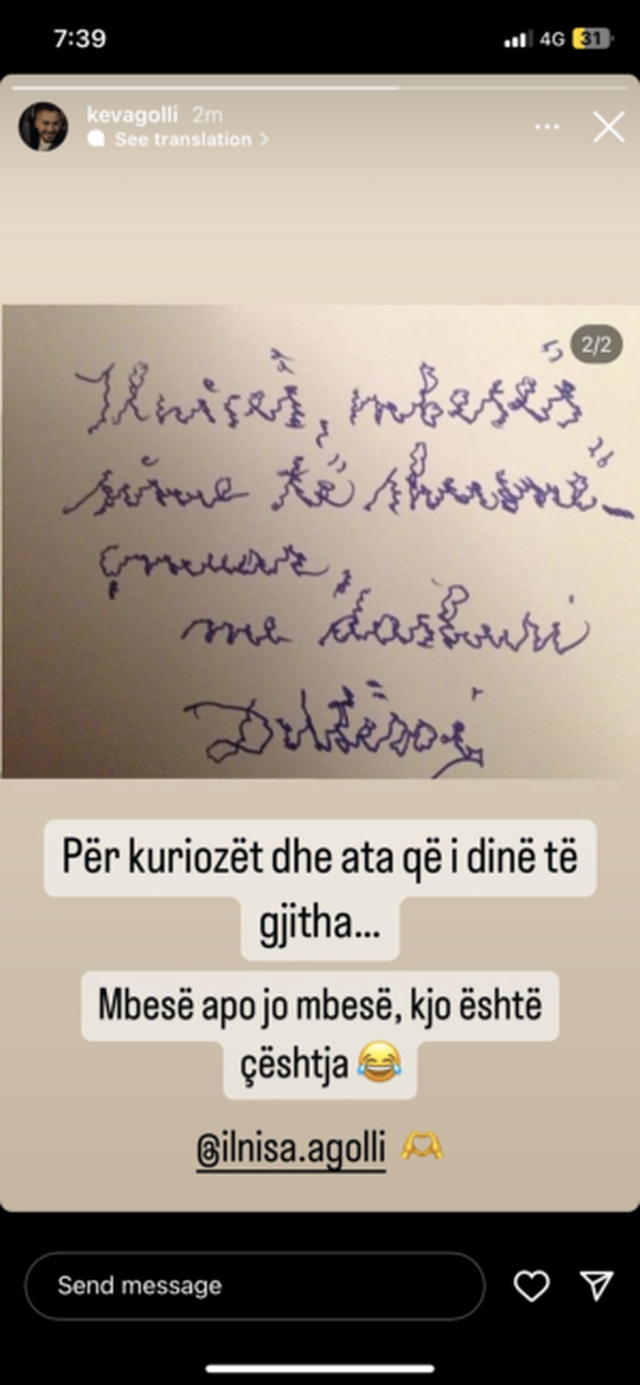 7:39
4G 31
kevagolli 2m
See translation >
2/2
Ilnisës, mbesës
sime të shumë-
çmuar,
me dashuri
Dritëroi
Për kuriozët dhe ata që i dinë të
gjitha...
Mbesë apo jo mbesë, kjo është
çështja 😂
@ilnisa.agolli 🫶
Send message